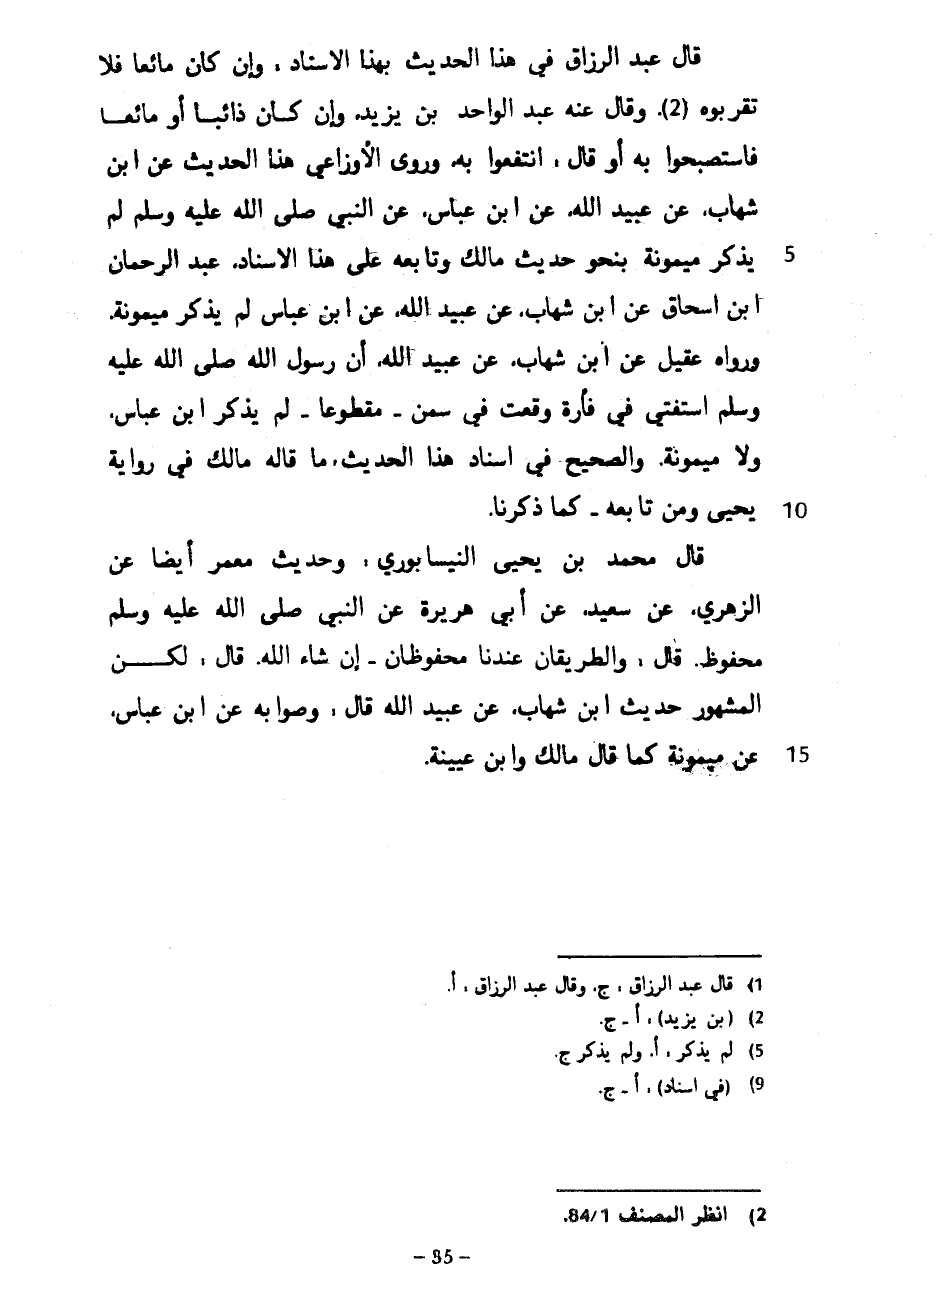 قال عبد الرزاق في هذا الحديث بهذا الاسناد ، وإن كان مائعا فلا
تقربوه (2). وقال عنه عبد الواحد بن يزيد، وإن كـان ذائبـا أو مائعـا
فاستصبحوا به أو قال ، انتفعوا به، وروى الأوزاعي هذا الحديث عن ابن
شهاب، عن عبيد الله، عن ابن عباس، عن النبي صلى الله عليه وسلم لم
5 يذكر ميمونة بنحو حديث مالك وتابعه على هذا الاسناد، عبد الرحمان
ابن اسحاق عن ابن شهاب، عن عبيد الله، عن ابن عباس لم يذكر ميمونة.
ورواه عقيل عن ابن شهاب، عن عبيد الله، أن رسول الله صلى الله عليه
وسلم استفتي في فأرة وقعت في سمن ـ مقطوعا ـ لم يذكر ابن عباس،
ولا ميمونة. والصحيح في اسناد هذا الحديث، ما قاله مالك في رواية
10 يحيى ومن تابعه ـ كما ذكرنا.
قال محمد بن يحيى النيسابوري ، وحديث معمر أيضا عن
الزهري، عن سعيد، عن أبي هريرة عن النبي صلى الله عليه وسلم
محفوظ. قال ، والطريقان عندنا محفوظان ـ إن شاء الله. قال ، لكـــن
المشهور حديث ابن شهاب، عن عبيد الله قال ، وصوابه عن ابن عباس،
15 عن ميمونة كما قال مالك وابن عيينة.
1) قال عبد الرزاق ، ج، وقال عبد الرزاق ، أ.
2) (بن يزيد) ، أ ـ ج.
5) لم يذكر ، أ. ولم يذكر ج.
9) (في اسناد) ، أ ـ ج.
2) انظر المصنف 84/1.
– 35 –